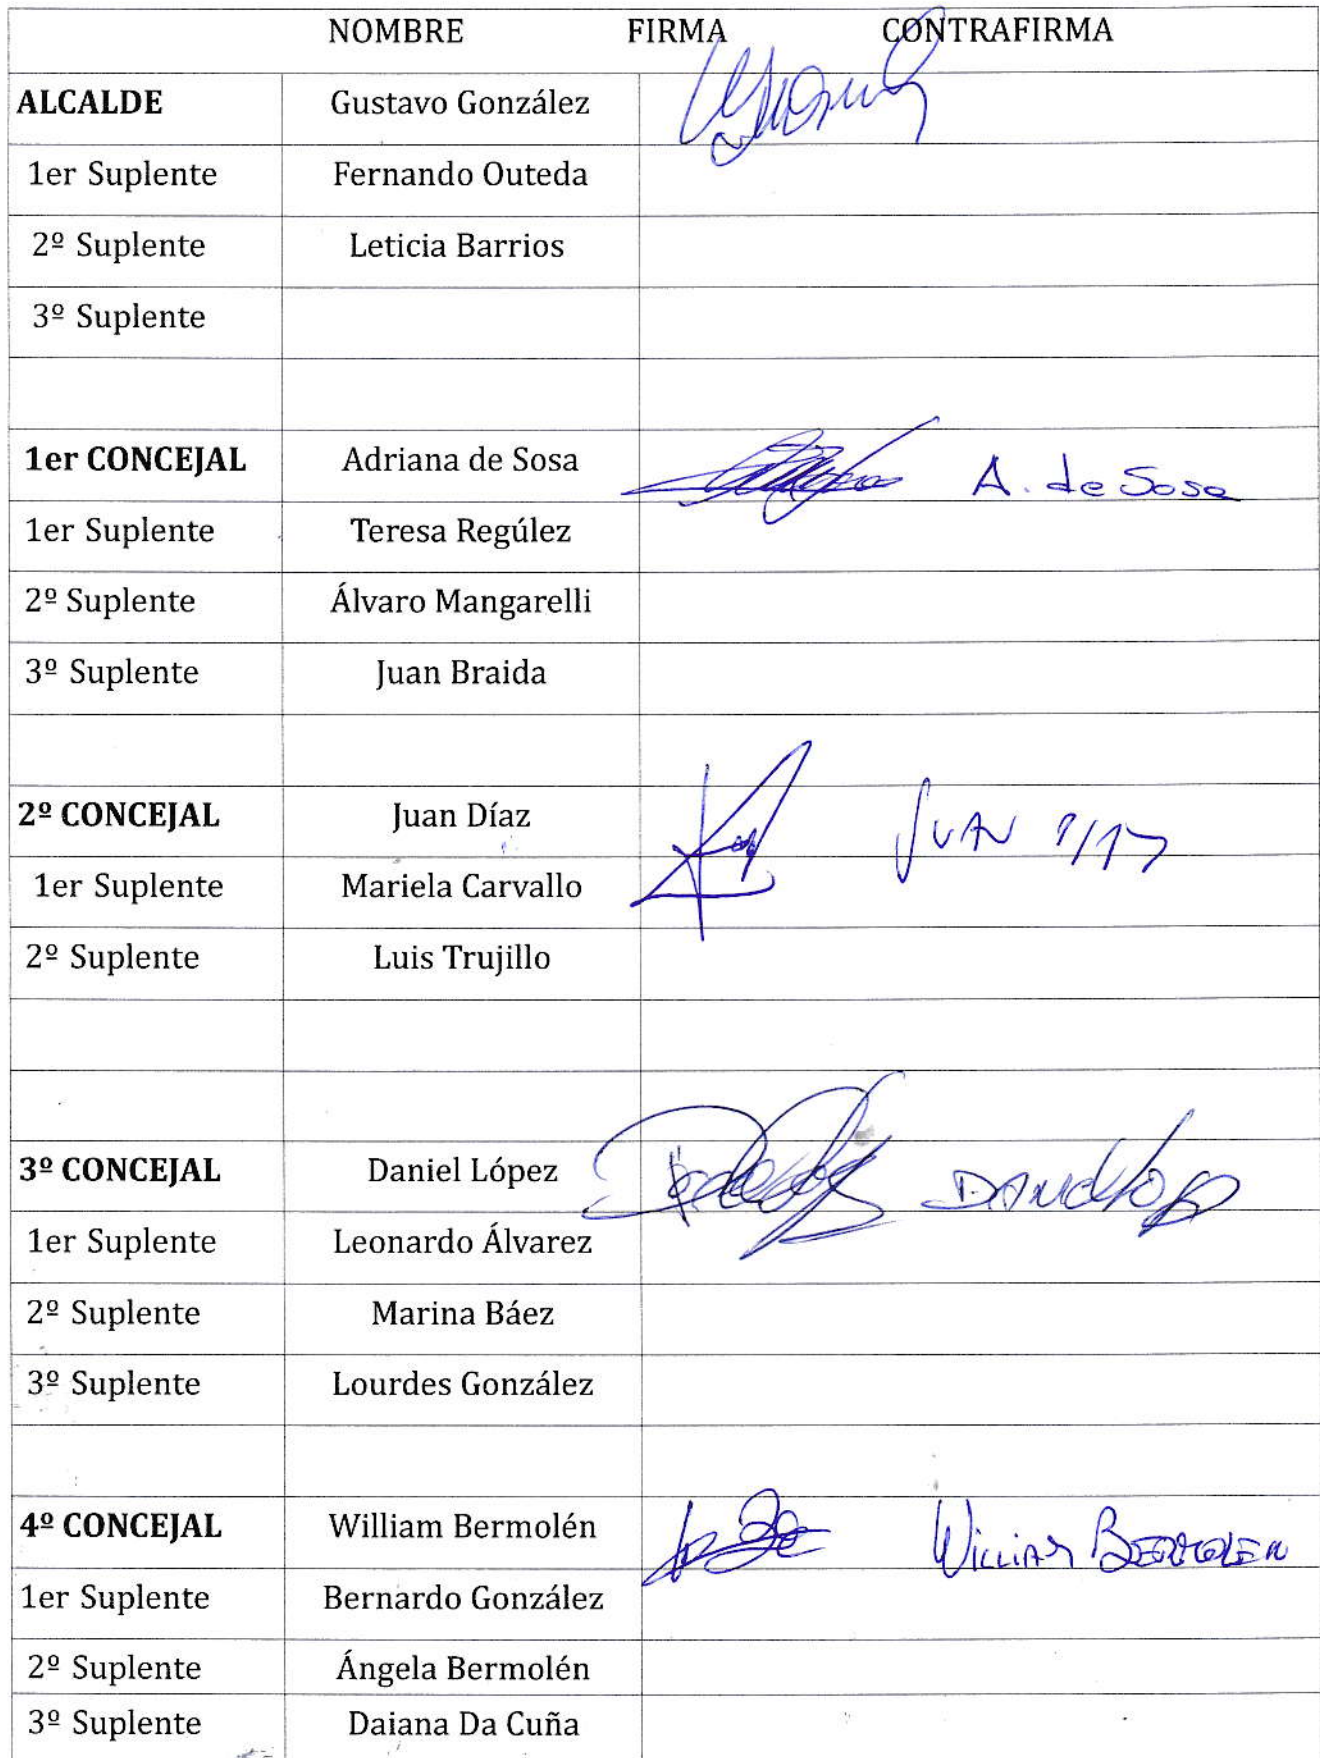 NOMBRE FIRMA CONTRAFIRMA
ALCALDE Gustavo González
1er Suplente Fernando Outeda
2º Suplente Leticia Barrios
3º Suplente
1er CONCEJAL Adriana de Sosa A. de Sosa
1er Suplente Teresa Regúlez
2º Suplente Álvaro Mangarelli
3º Suplente Juan Braida
2º CONCEJAL Juan Díaz JUAN
1er Suplente Mariela Carvallo
2º Suplente Luis Trujillo
3º CONCEJAL Daniel López
1er Suplente Leonardo Álvarez
2º Suplente Marina Báez
3º Suplente Lourdes González
4º CONCEJAL William Bermolén WILLIAM BERMOLEN
1er Suplente Bernardo González
2º Suplente Ángela Bermolén
3º Suplente Daiana Da Cuña